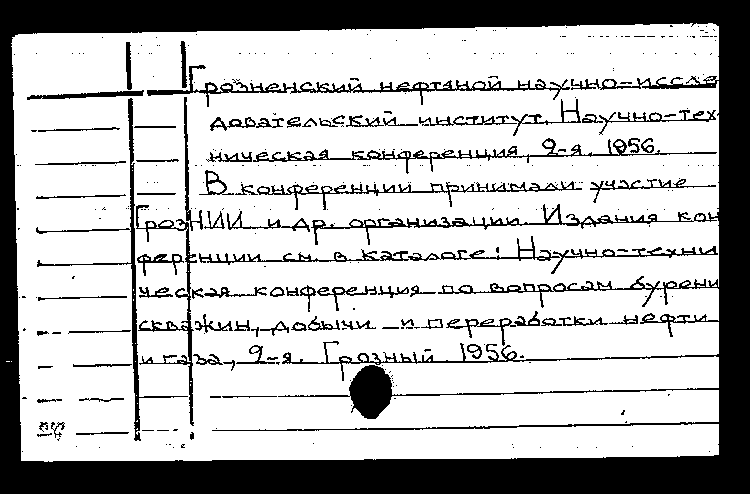 Грозненский нефтяной научно-иссле
довательский институт. Научно-тех
ническая конференция, 2-я. 1956.
В конференции принимали участие
ГрозНИИ и др. организации. Издания кон
ференции см. в каталоге: Научно-техни
ческая конференция по вопросам бурени
скважин, добычи и переработки нефти
и газа, 2-я. Грозный 1956.